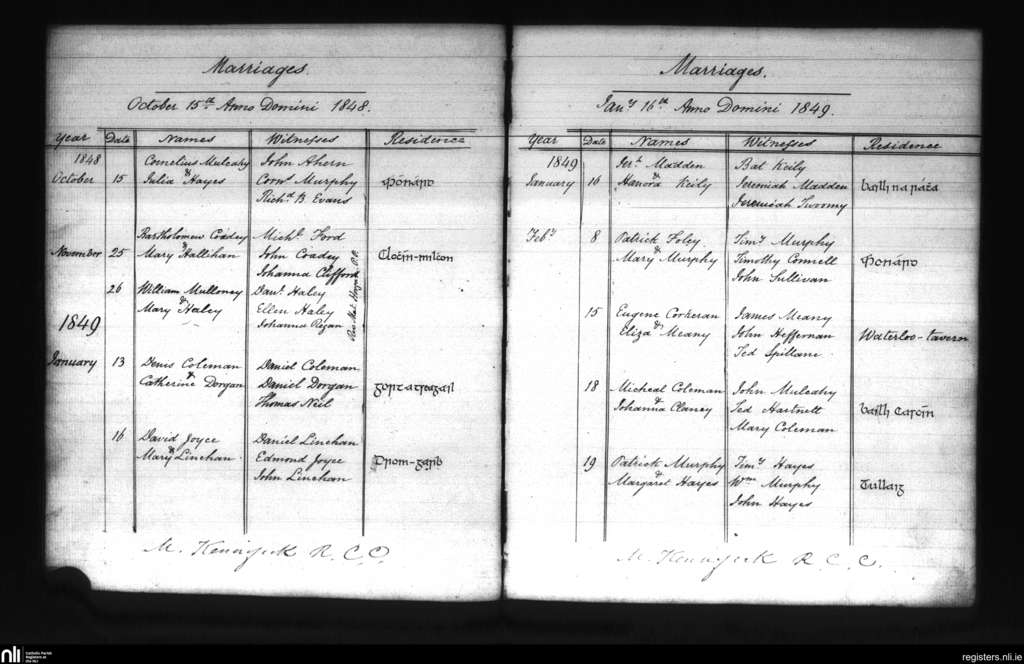 Marriages.
October 15th Anno Domini 1848.
Year Date Names Witnesses Residence
1848 Cornelius Mulcahy John Ahern
October 15 & Julia Hayes Corns. Murphy Mónárd
Richd. B. Evans
Bartholomew Coadey Michl. Ford
November 25 & Mary Hallihan John Coadey Cloċín-mileon
Johanna Clifford
26 William Mulloney Danl. Haley
& Mary Haley Ellen Haley
1849 Johanna Regan
January 13 Denis Coleman Daniel Coleman
& Catherine Dorgan Daniel Dorgan
Thomas Neil
16 David Joyce Daniel Linehan
& Mary Linehan Edmond Joyce Drom-garb
John Linehan
R. C. C.
Marriages.
Jany 16th Anno Domini 1849.
Year Date Names Witnesses Residence
1849 Madden Bat Keily
January 16 & Hanora Keily Jeremiah Madden
Jeremiah Twomy
Feby 8 Patrick Foley Timy Murphy
& Mary Murphy Timothy Connell Mónárd
John Sullivan
15 Eugene Corkeran James Meany
& Eliza Meany John Heffernan Waterloo-tavern
Ted Spillane
18 Micheal Coleman John Mulcahy
& Johanna Clancy Ted Hartnett
Mary Coleman
19 Patrick Murphy Timy Hayes
& Margaret Hayes Wm Murphy Tullaig
John Hayes
R. C. C.
nli
Catholic Parish
Registers at
the NLI
registers.nli.ie